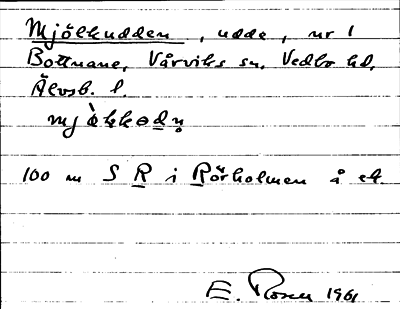 Mjölkudden, udde, nr 1
Bottnane, Vårviks sn, Vedbo hd,
Älvsb. l.
100 m S R i Rörholmen å ek.
E. Rosen 1961